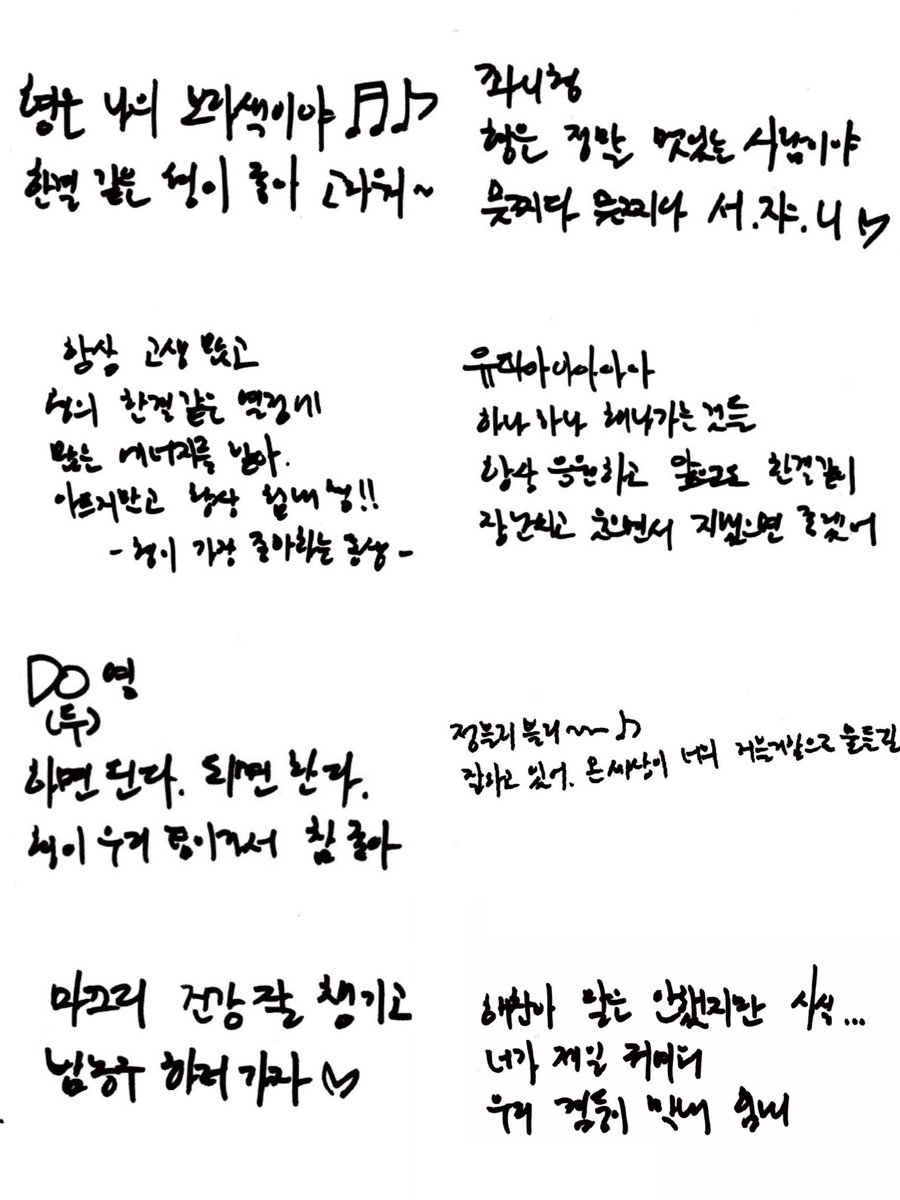 형은 나의 보라색이야
한결 같은 형이 좋아 고마워~
좌니형
형은 정말 멋있는 사람이야
믓찌다 믓찌다 서.쟈.니
항상 고생 많고
형의 한결같은 열정에
많은 에너지를 받아.
아프지만고 항상 힘내 형!!
- 형이 가장 좋아하는 동생 -
유타아니아아아
하나 하나 해나가는 것들
항상 응원하고 앞으로도 한결같이
장난치고 웃으면서 지냈으면 좋겠어
DO영
(두)
하면 된다. 되면 한다.
형이 우리 팀이라서 참 좋아
정블리 블리~~
잘하고 있어. 온 세상이 너의 거블거람으로 물든길
마끄리 건강 잘 챙기고
밤농구 하러 가자
해찬아 말은 안했지만 사실...
너가 제일 귀여워
우리 검둥이 막내 힘내